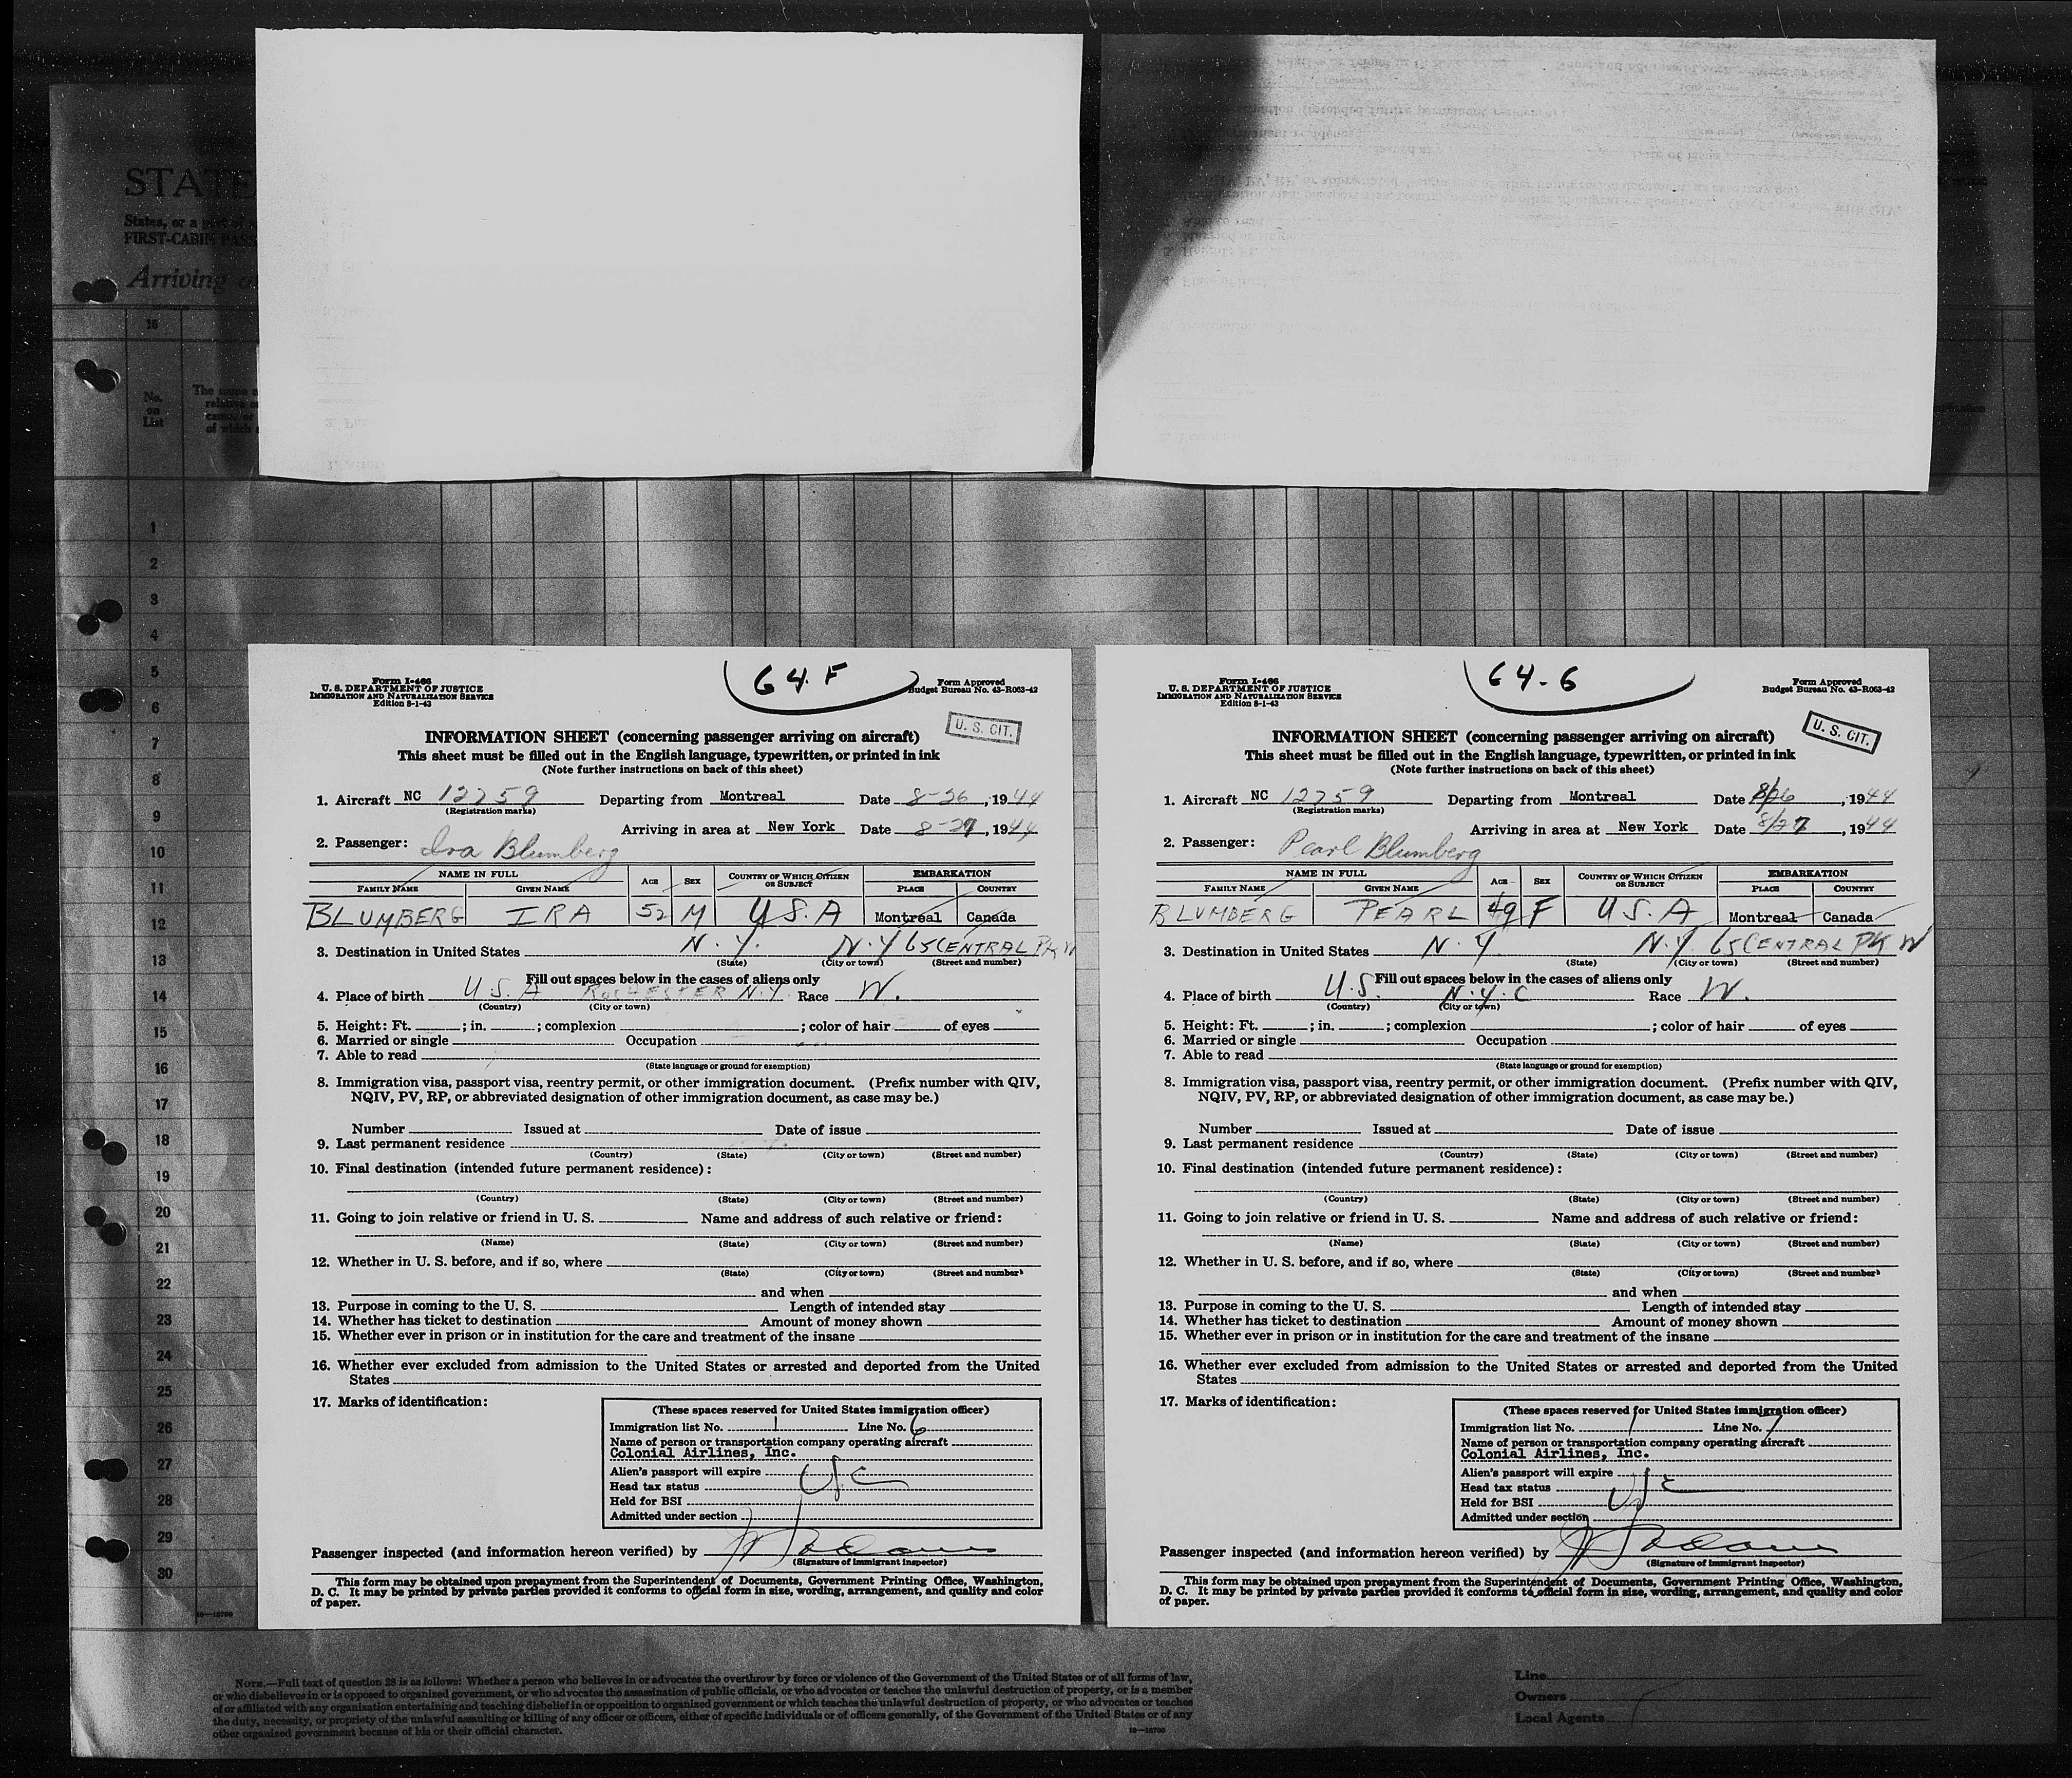 STATE
States, or a
FIRST-CABIN PASS
Arriving
16
No.
on
List
The name
1
2
3
4
5
6
7
8
9
10
11
12
13
14
15
16
17
18
19
20
21
22
23
24
25
26
27
28
29
30
Form I-466
U. S. DEPARTMENT OF JUSTICE
IMMIGRATION AND NATURALIZATION SERVICE
Edition 8-1-43
64.F
Form Approved
Budget Bureau No. 43-R063-42
U. S. CIT.
INFORMATION SHEET (concerning passenger arriving on aircraft)
This sheet must be filled out in the English language, typewritten, or printed in ink
(Note further instructions on back of this sheet)
1. Aircraft NC 12759 Departing from Montreal Date 8-26, 1944
(Registration marks)
Arriving in area at New York Date 8-27, 1944
2. Passenger: Ira Blumberg
NAME IN FULL AGE SEX COUNTRY OF WHICH CITIZEN OR SUBJECT EMBARKATION
FAMILY NAME GIVEN NAME PLACE COUNTRY
BLUMBERG IRA 52 M U.S.A Montreal Canada
3. Destination in United States N.Y. N.Y 65 CENTRAL PK W
(State) (City or town) (Street and number)
Fill out spaces below in the cases of aliens only
4. Place of birth U.S.A ROCHESTER N.Y. Race W.
(Country) (City or town)
5. Height: Ft. ; in. ; complexion ; color of hair of eyes
6. Married or single Occupation
7. Able to read
(State language or ground for exemption)
8. Immigration visa, passport visa, reentry permit, or other immigration document. (Prefix number with QIV,
NQIV, PV, RP, or abbreviated designation of other immigration document, as case may be.)
Number Issued at Date of issue
9. Last permanent residence
(Country) (State) (City or town) (Street and number)
10. Final destination (intended future permanent residence):
(Country) (State) (City or town) (Street and number)
11. Going to join relative or friend in U. S. Name and address of such relative or friend:
(Name) (State) (City or town) (Street and number)
12. Whether in U. S. before, and if so, where
(State) (City or town) (Street and number)
and when
13. Purpose in coming to the U. S. Length of intended stay
14. Whether has ticket to destination Amount of money shown
15. Whether ever in prison or in institution for the care and treatment of the insane
16. Whether ever excluded from admission to the United States or arrested and deported from the United
States
17. Marks of identification:
(These spaces reserved for United States immigration officer)
Immigration list No. 1 Line No. 6
Name of person or transportation company operating aircraft
Colonial Airlines, Inc.
Alien's passport will expire
Head tax status
Held for BSI
Admitted under section
Passenger inspected (and information hereon verified) by
(Signature of immigrant inspector)
This form may be obtained upon prepayment from the Superintendent of Documents, Government Printing Office, Washington,
D. C. It may be printed by private parties provided it conforms to official form in size, wording, arrangement, and quality and color
of paper.
Form I-466
U. S. DEPARTMENT OF JUSTICE
IMMIGRATION AND NATURALIZATION SERVICE
Edition 8-1-43
64-6
Form Approved
Budget Bureau No. 43-R063-42
U. S. CIT.
INFORMATION SHEET (concerning passenger arriving on aircraft)
This sheet must be filled out in the English language, typewritten, or printed in ink
(Note further instructions on back of this sheet)
1. Aircraft NC 12759 Departing from Montreal Date 8/26, 1944
(Registration marks)
Arriving in area at New York Date 8/27, 1944
2. Passenger: Pearl Blumberg
NAME IN FULL AGE SEX COUNTRY OF WHICH CITIZEN OR SUBJECT EMBARKATION
FAMILY NAME GIVEN NAME PLACE COUNTRY
BLUMBERG PEARL 49 F U.S.A Montreal Canada
3. Destination in United States N.Y N.Y. 65 CENTRAL PK W
(State) (City or town) (Street and number)
Fill out spaces below in the cases of aliens only
4. Place of birth U.S. N.Y.C Race W.
(Country) (City or town)
5. Height: Ft. ; in. ; complexion ; color of hair of eyes
6. Married or single Occupation
7. Able to read
(State language or ground for exemption)
8. Immigration visa, passport visa, reentry permit, or other immigration document. (Prefix number with QIV,
NQIV, PV, RP, or abbreviated designation of other immigration document, as case may be.)
Number Issued at Date of issue
9. Last permanent residence
(Country) (State) (City or town) (Street and number)
10. Final destination (intended future permanent residence):
(Country) (State) (City or town) (Street and number)
11. Going to join relative or friend in U. S. Name and address of such relative or friend:
(Name) (State) (City or town) (Street and number)
12. Whether in U. S. before, and if so, where
(State) (City or town) (Street and number)
and when
13. Purpose in coming to the U. S. Length of intended stay
14. Whether has ticket to destination Amount of money shown
15. Whether ever in prison or in institution for the care and treatment of the insane
16. Whether ever excluded from admission to the United States or arrested and deported from the United
States
17. Marks of identification:
(These spaces reserved for United States immigration officer)
Immigration list No. 1 Line No. 7
Name of person or transportation company operating aircraft
Colonial Airlines, Inc.
Alien's passport will expire
Head tax status
Held for BSI
Admitted under section
Passenger inspected (and information hereon verified) by
(Signature of immigrant inspector)
This form may be obtained upon prepayment from the Superintendent of Documents, Government Printing Office, Washington,
D. C. It may be printed by private parties provided it conforms to official form in size, wording, arrangement, and quality and color
of paper.
NOTE.—Full text of question 28 is as follows: Whether a person who believes in or advocates the overthrow by force or violence of the Government of the United States or of all forms of law,
or who disbelieves in or is opposed to organized government, or who advocates the assassination of public officials, or who advocates or teaches the unlawful destruction of property, or is a member
of or affiliated with any organization entertaining and teaching disbelief in or opposition to organized government or which teaches the unlawful destruction of property, or who advocates or teaches
the duty, necessity, or propriety of the unlawful assaulting or killing of any officer or officers, either of specific individuals or of officers generally, of the Government of the United States or of any
other organized government because of his or their official character.
Line
Owners
Local Agents